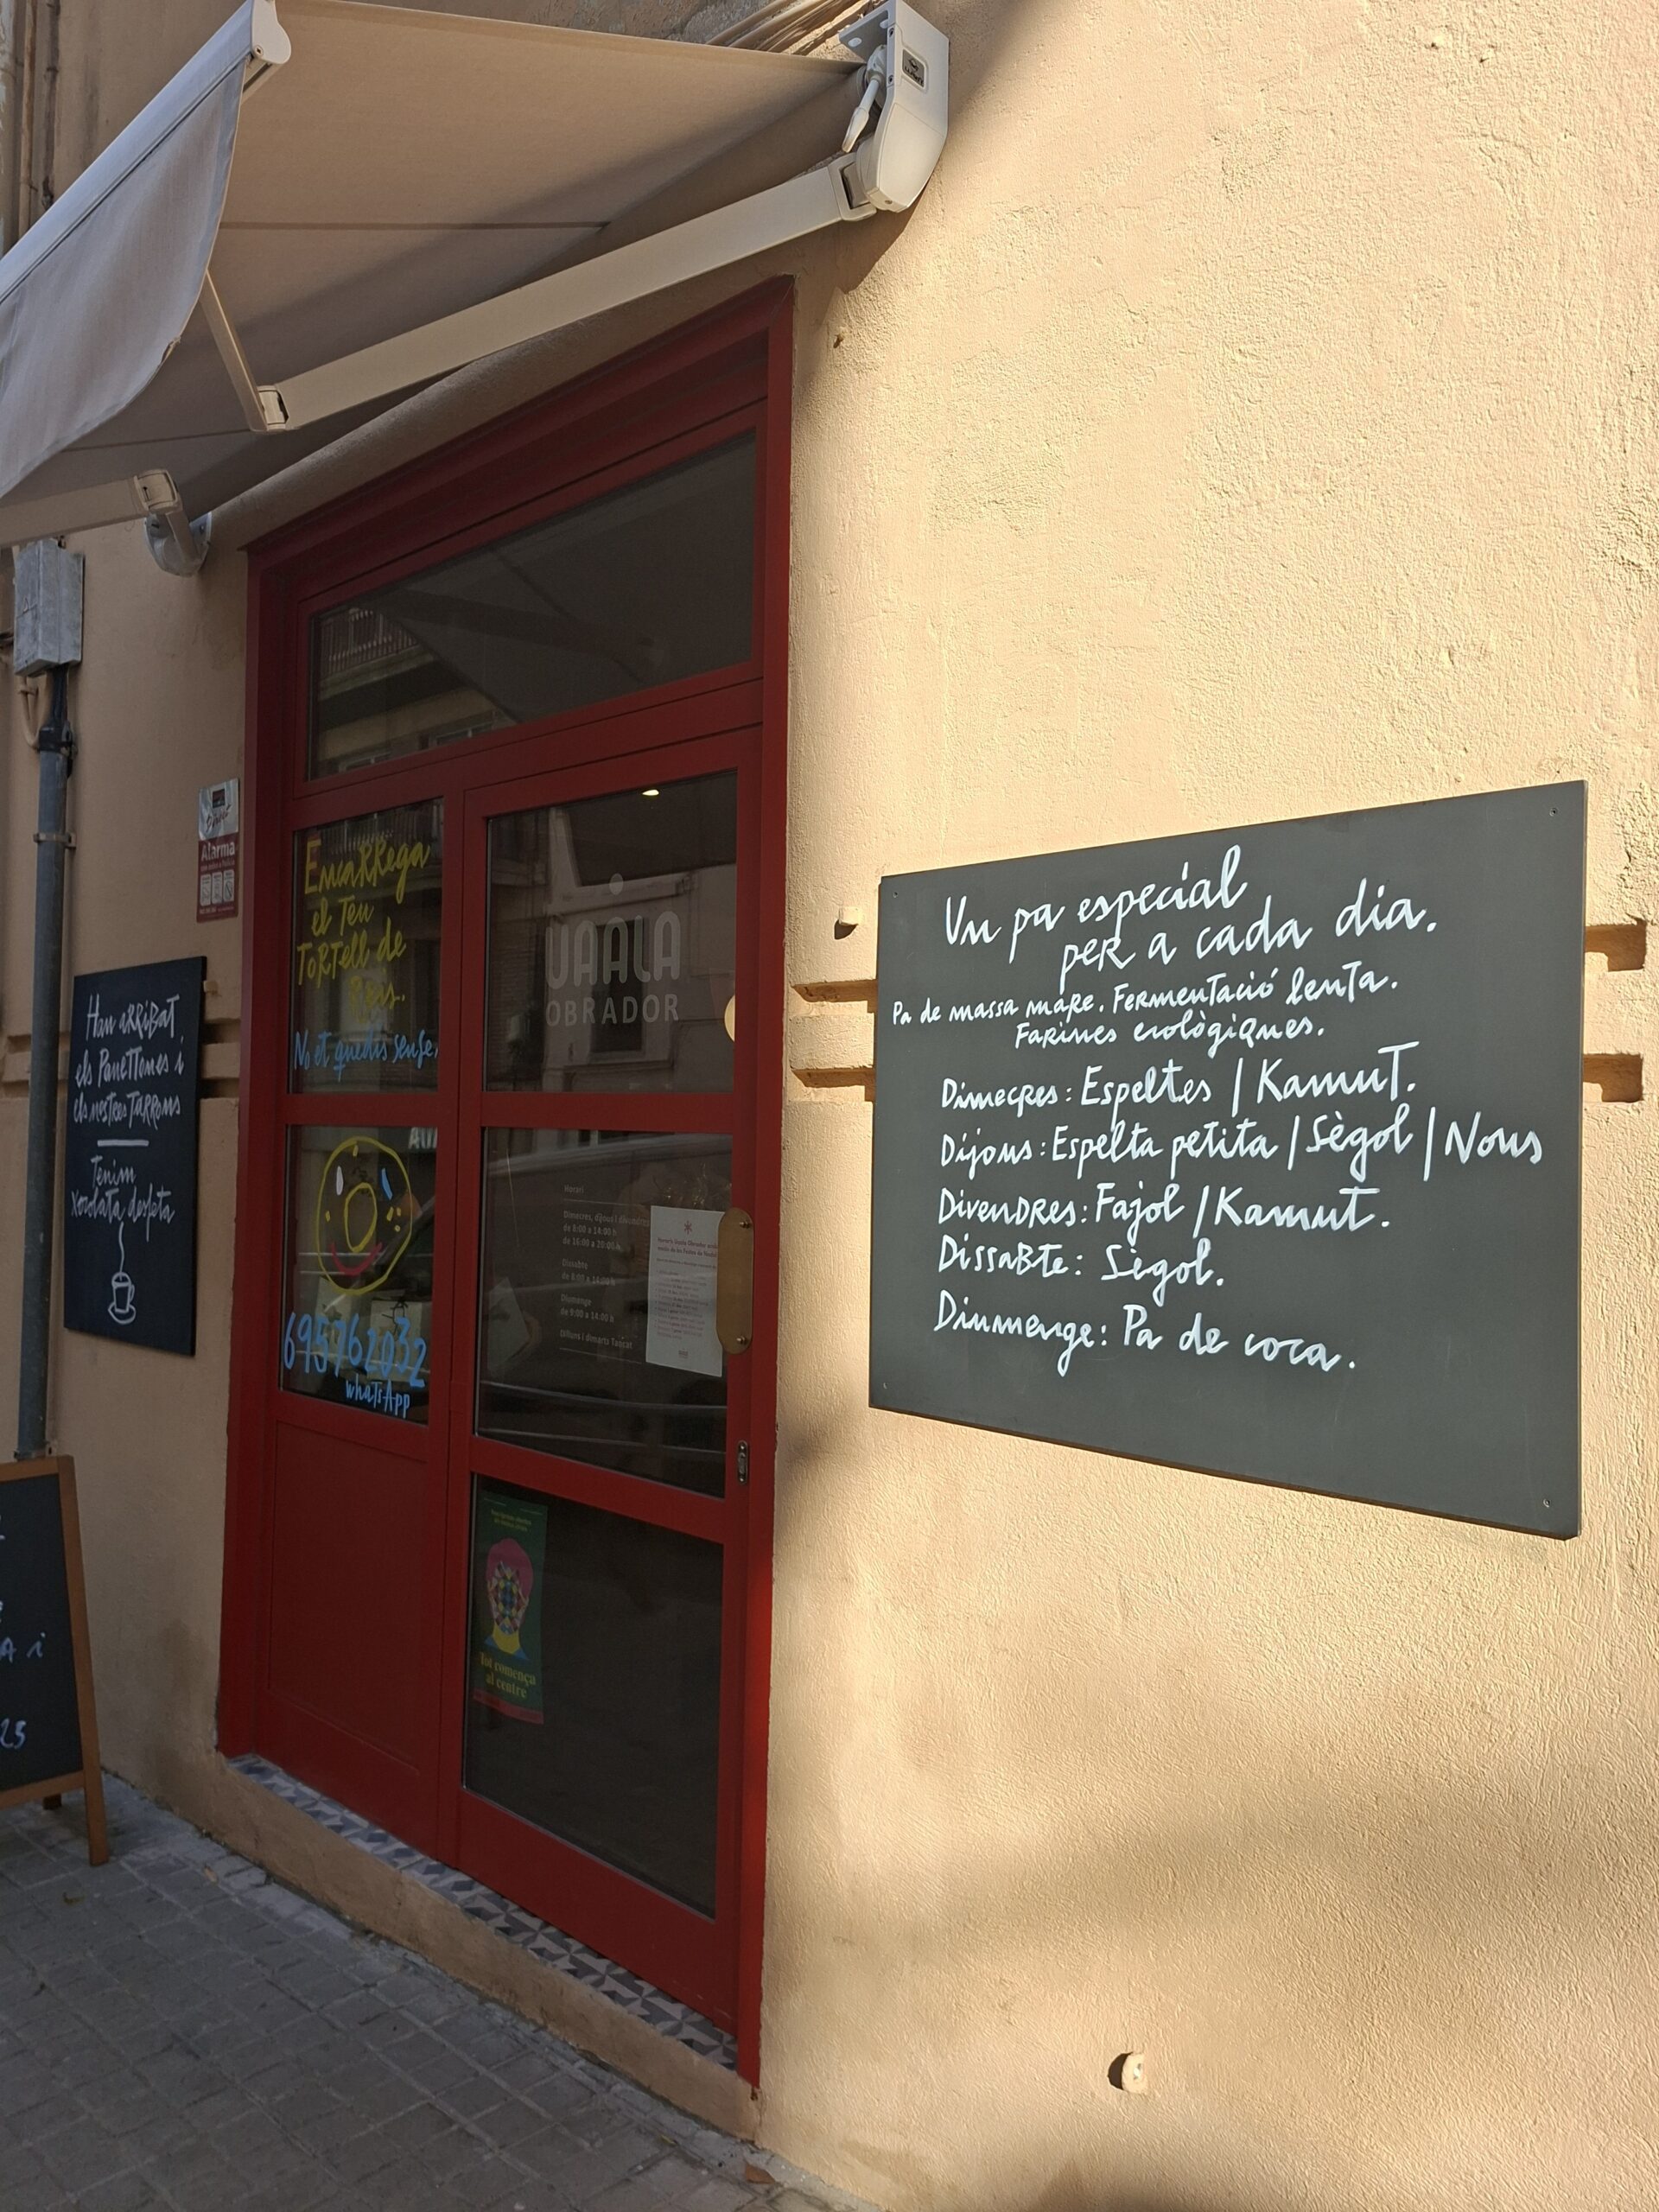 Han arribat
els Panettones i
els nostres Turrons
Tenim
Xocolata desfeta
Alarma
Encarrega
el teu
Tortell de
Reis.
No et quedis sense.
695762032
whatsApp
VAALA
OBRADOR
Horari
Dimecres, dijous i divendres
de 8:00 a 14:00 h
de 16:00 a 20:00 h
Dissabte
de 8:00 a 14:00 h
Diumenge
de 9:00 a 14:00 h
Dilluns i dimarts Tancat
Tot comença
al centre
A i
25
Un pa especial
per a cada dia.
Pa de massa mare. Fermentació lenta.
Farines ecològiques.
Dimecres: Espeltes | Kamut.
Dijous: Espelta petita | Sègol | Nous
Divendres: Fajol / Kamut.
Dissabte: Sègol.
Diumenge: Pa de coca.